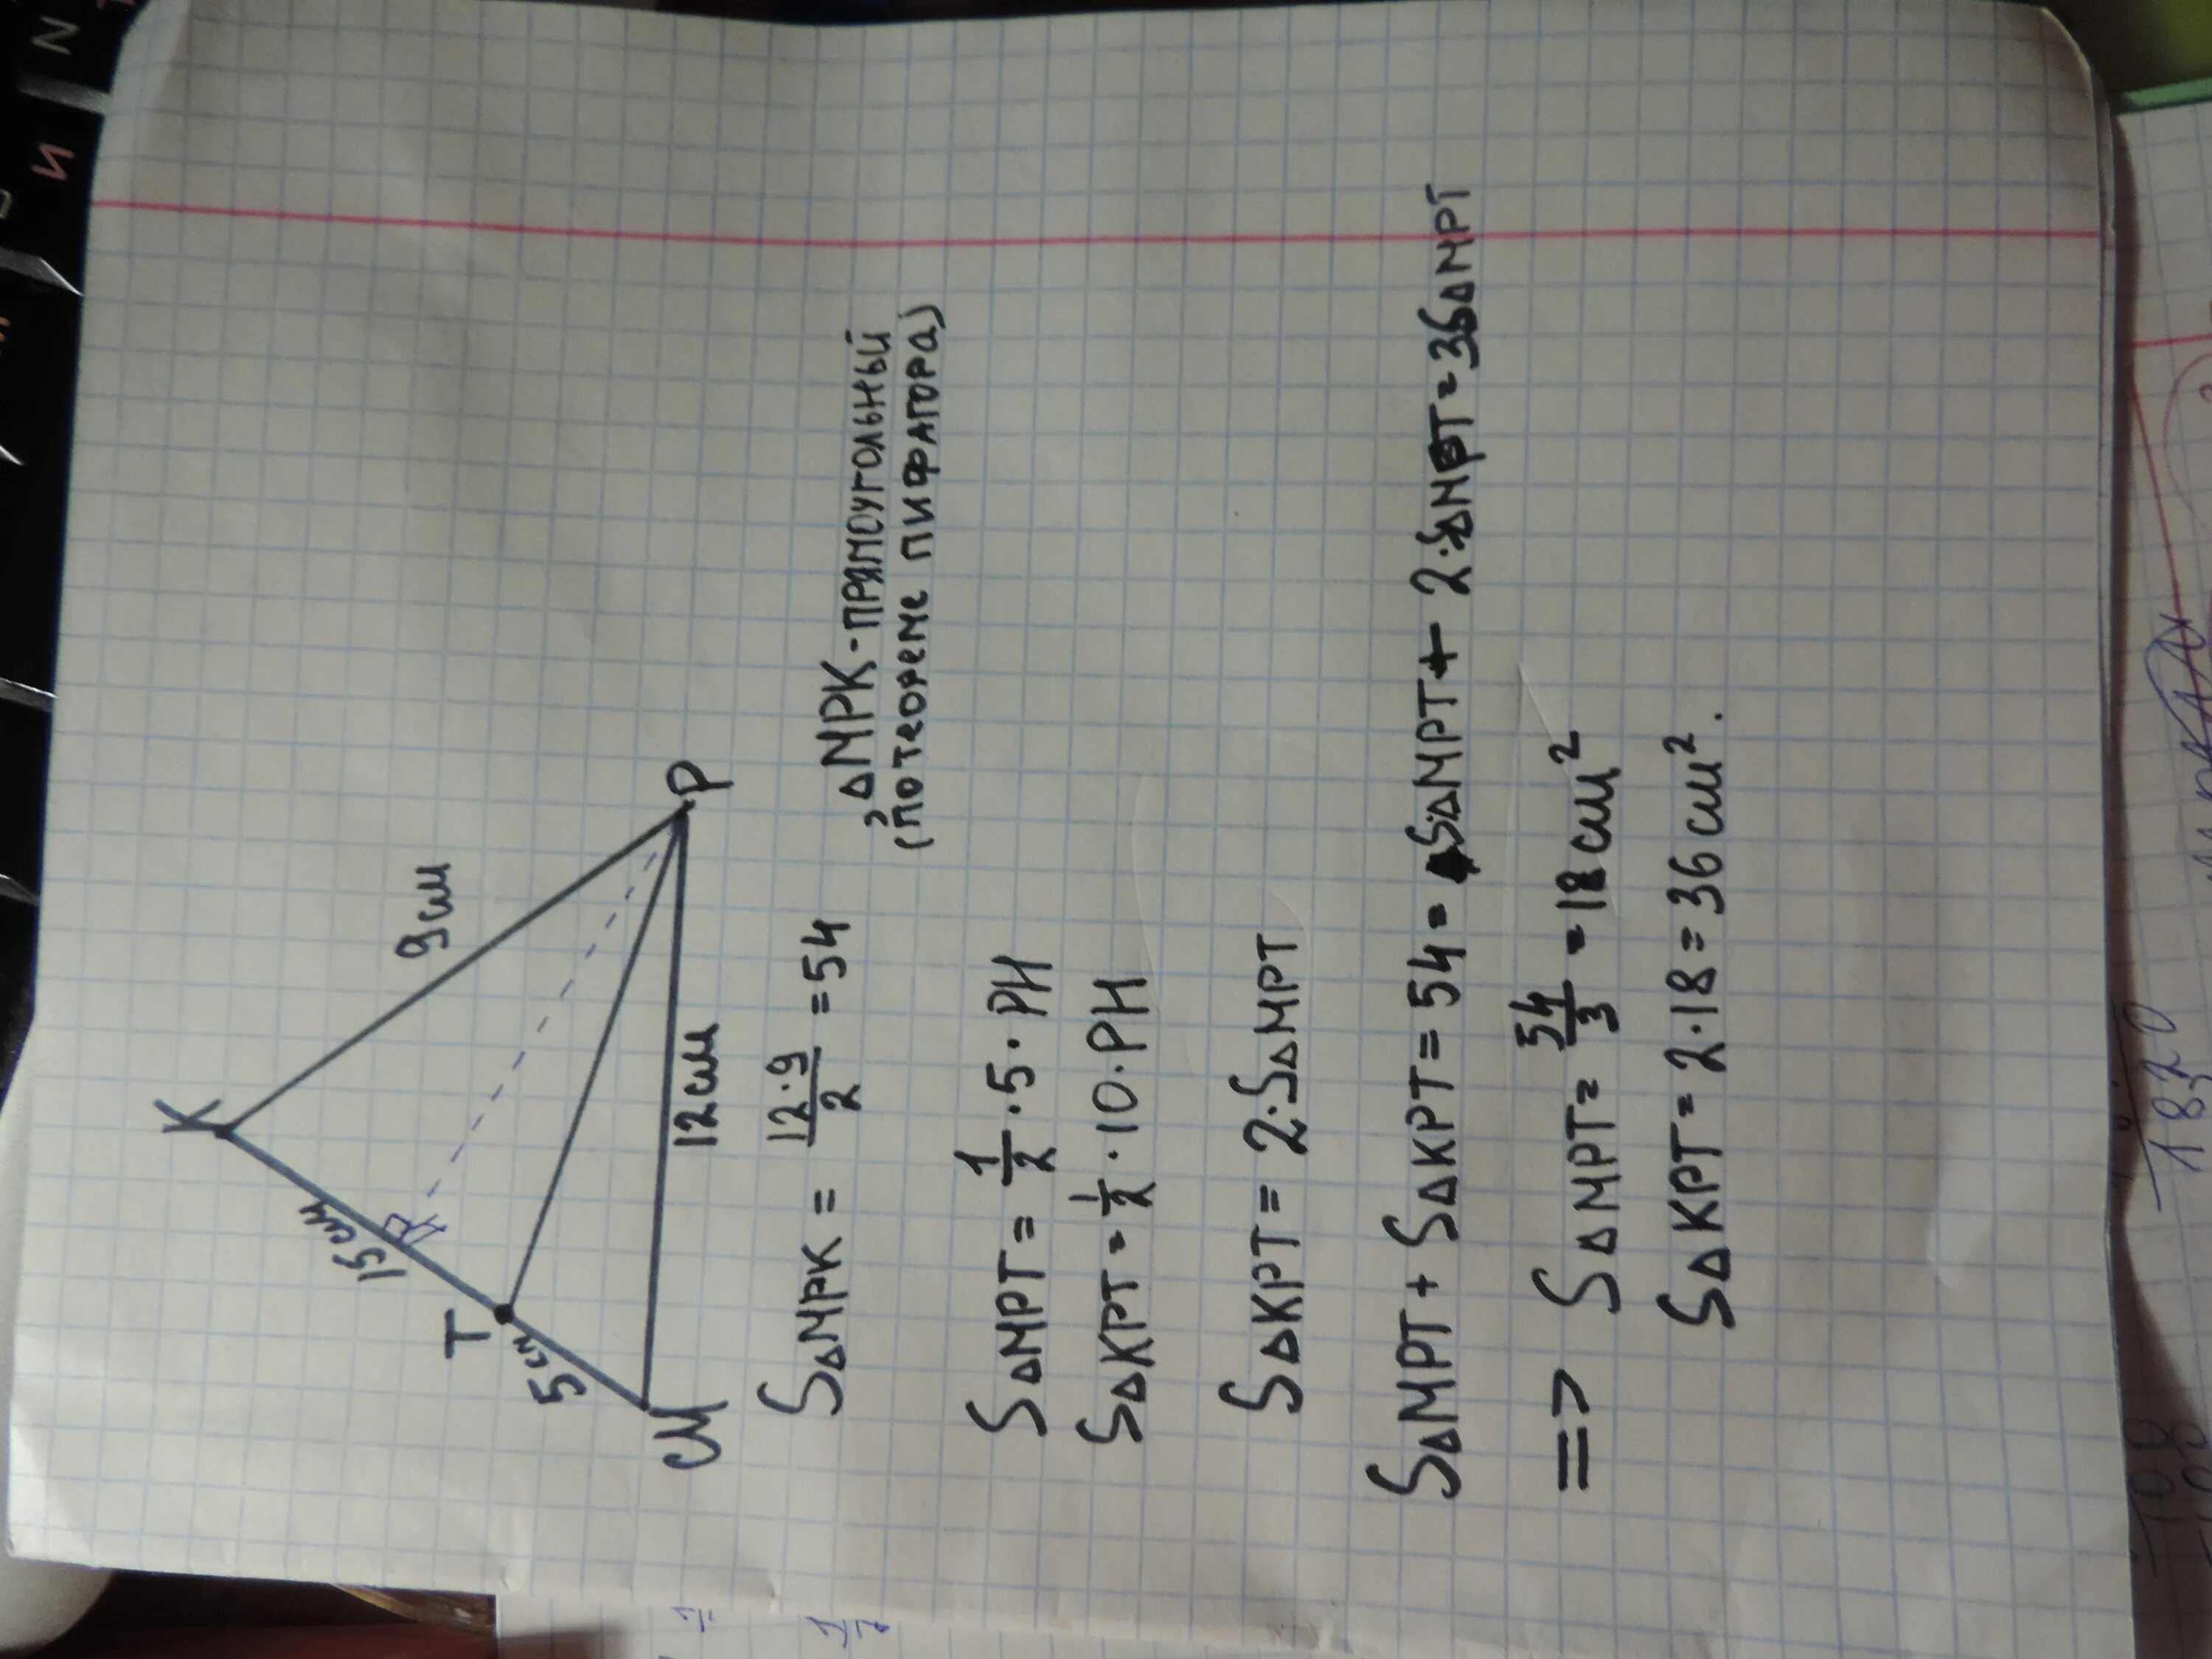 K
9 см
15 см
T
5 см
M
12 см
P
S△MPK = 12·9/2 = 54, △MPK-прямоугольный
(потеореме пифагора)
S△MPT = 1/2 · 5 · PH
S△KPT = 1/2 · 10 · PH
S△KPT = 2·S△MPT
S△MPT + S△KPT = 54 = S△MPT + 2·S△MPT = 3S△MPT
=> S△MPT = 54/3 = 18 см²
S△KPT = 2·18 = 36 см².
1820